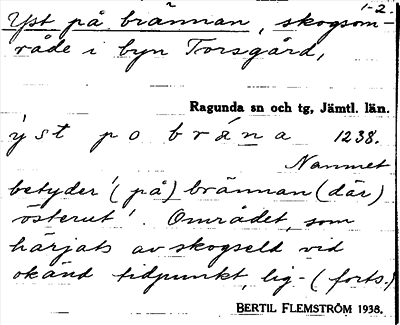 1-2.
Yst på brännan, skogsom-
råde i byn Torsgård,
Ragunda sn och tg, Jämtl. län.
ýst po brána 1238.
Namnet
betyder '(på) brännan (där)
österut'. Området, som
härjats av skogseld vid
okänd tidpunkt, lig- (forts.)
BERTIL FLEMSTRÖM 1938.